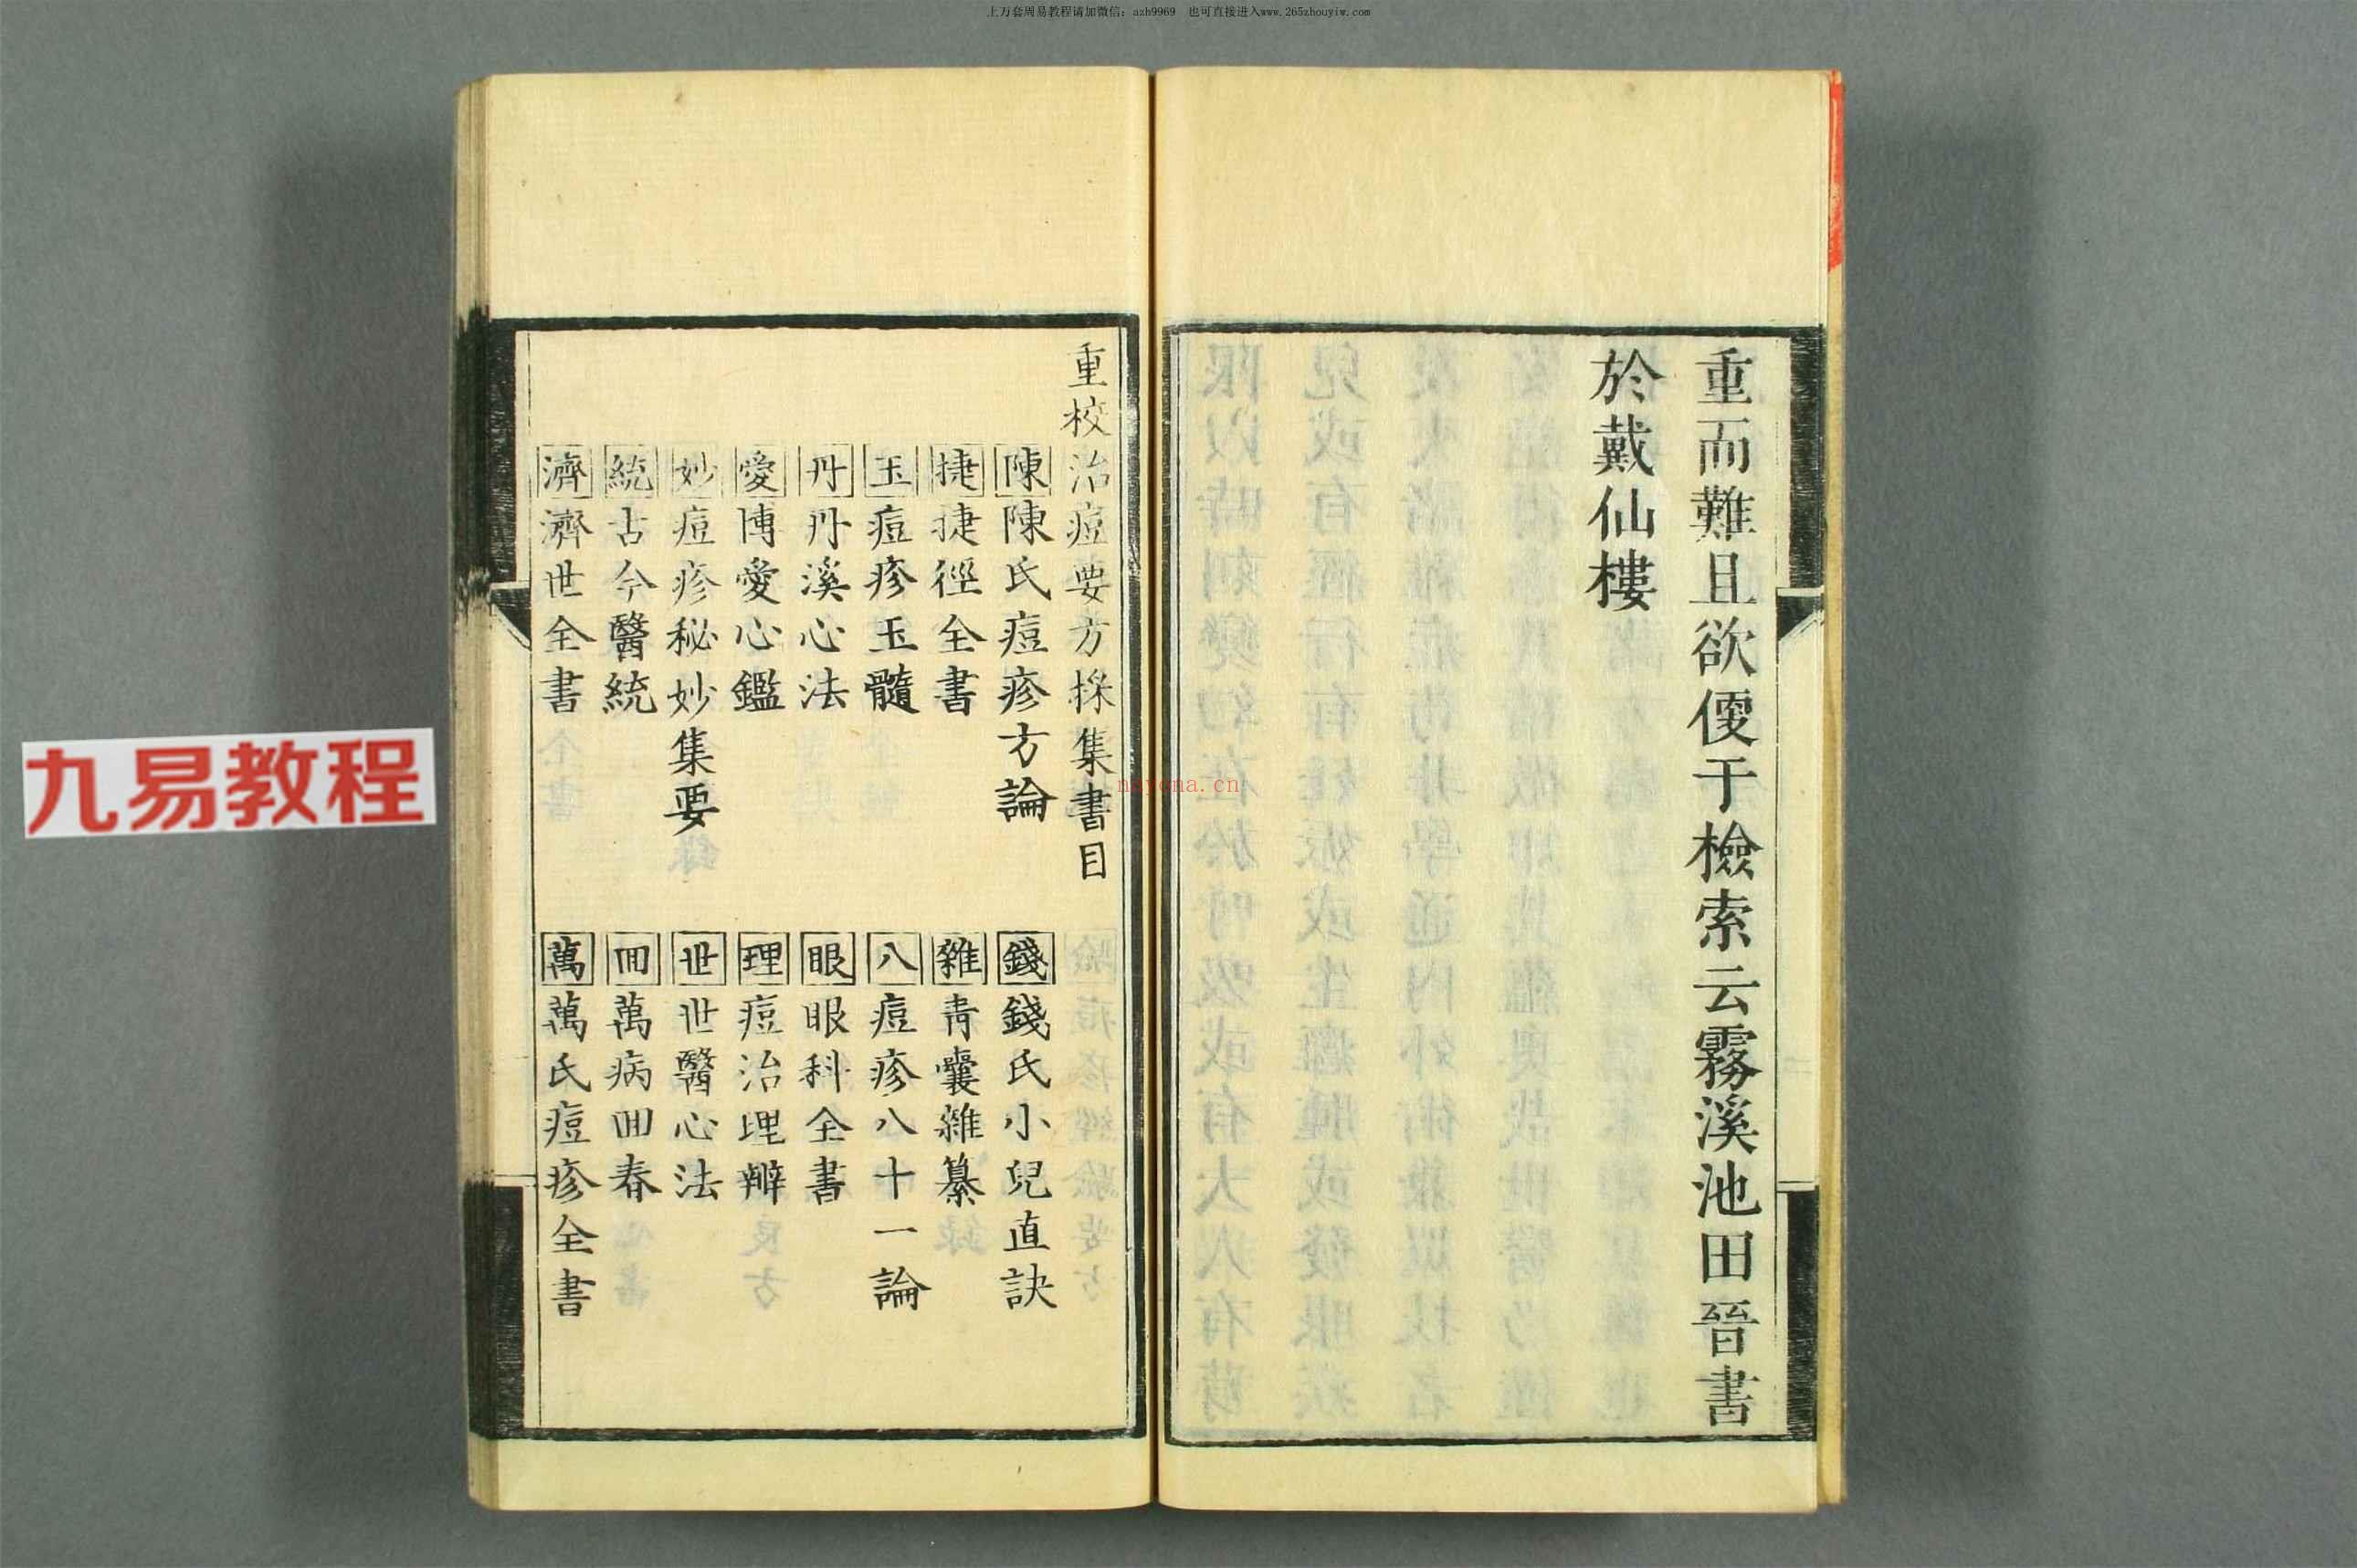 上万套周易教程请加微信：azh9969　也可直接进入www.265zhouyiw.com
重而難且欲便于檢索云霧溪池田晉書
於戴仙樓
重校治痘要方採集書目
陳陳氏痘疹方論
錢錢氏小兒直訣
捷捷徑全書
雜青囊雜纂
玉痘疹玉髓
八痘疹八十一論
丹丹溪心法
眼眼科全書
愛博愛心鑑
理痘治理辨
妙痘疹秘妙集要
世世醫心法
統古今醫統
回萬病回春
濟濟世全書
萬萬氏痘疹全書
九易教程
nayona.cn